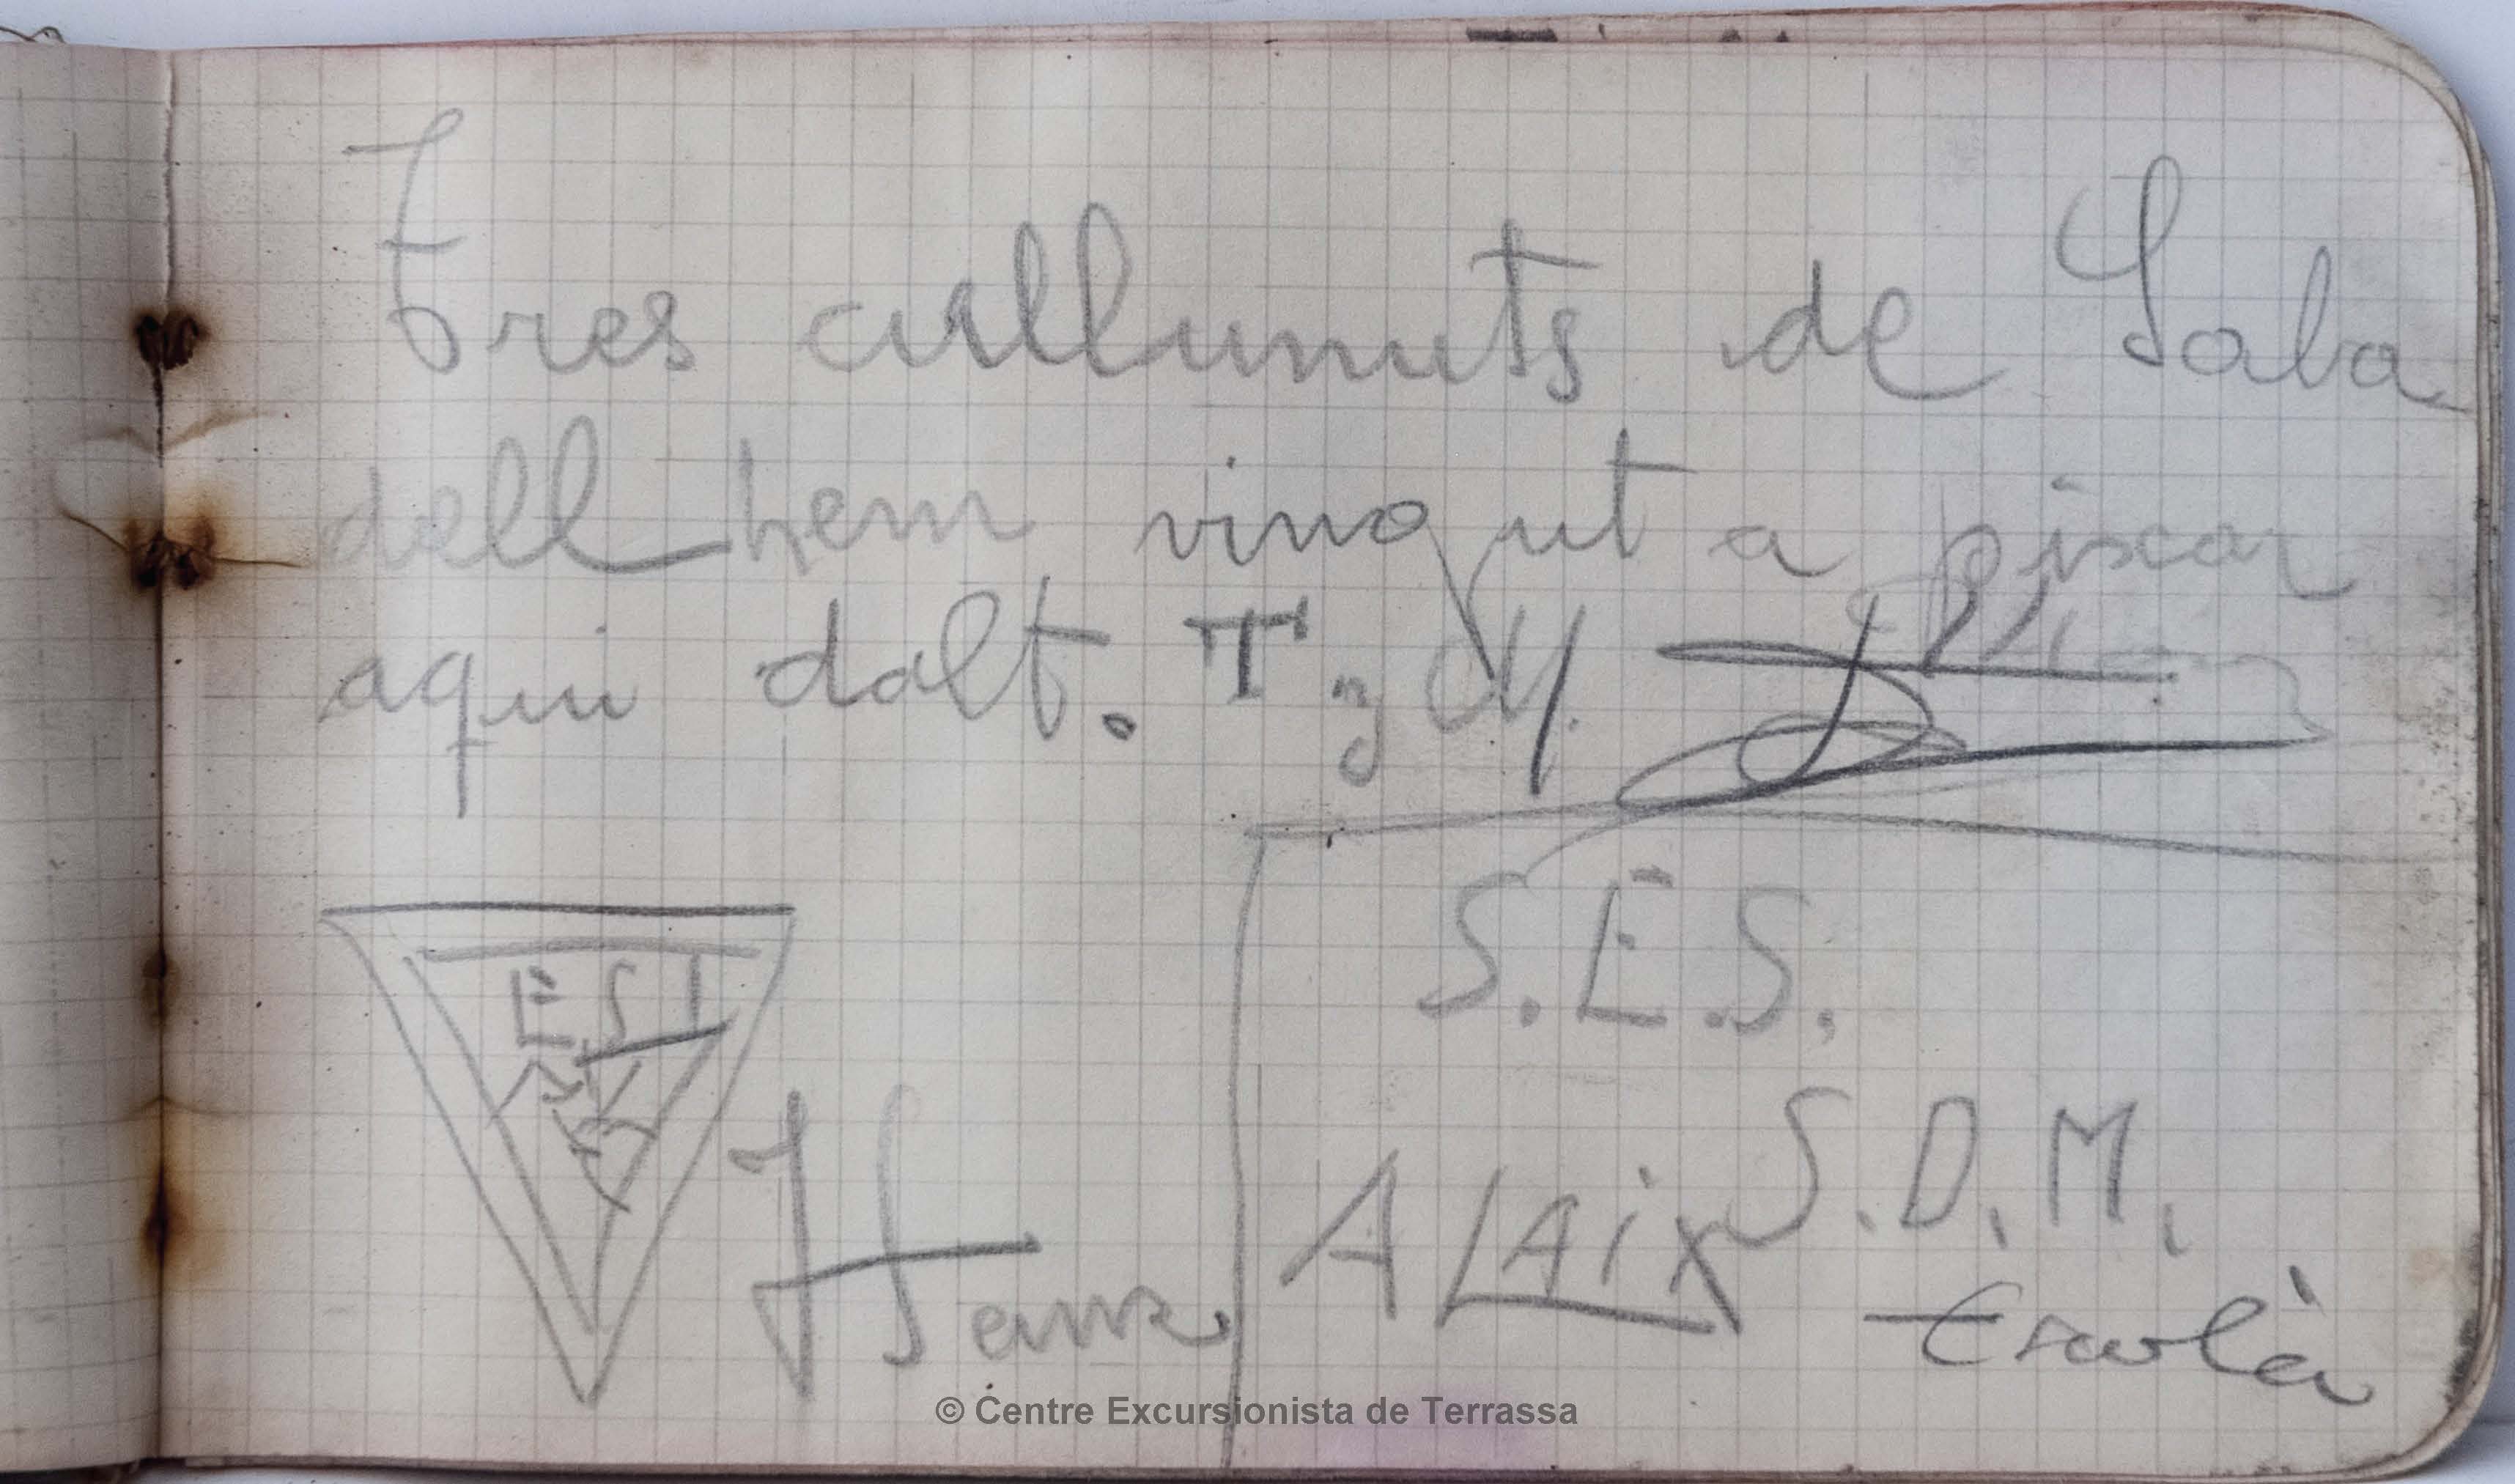 Tres cullunuts de Saba
dell hem vingut a piscar
aqui dalt. T
E.S
S.E.S.
S.D.M.
ALAix
Escolà
© Centre Excursionista de Terrassa